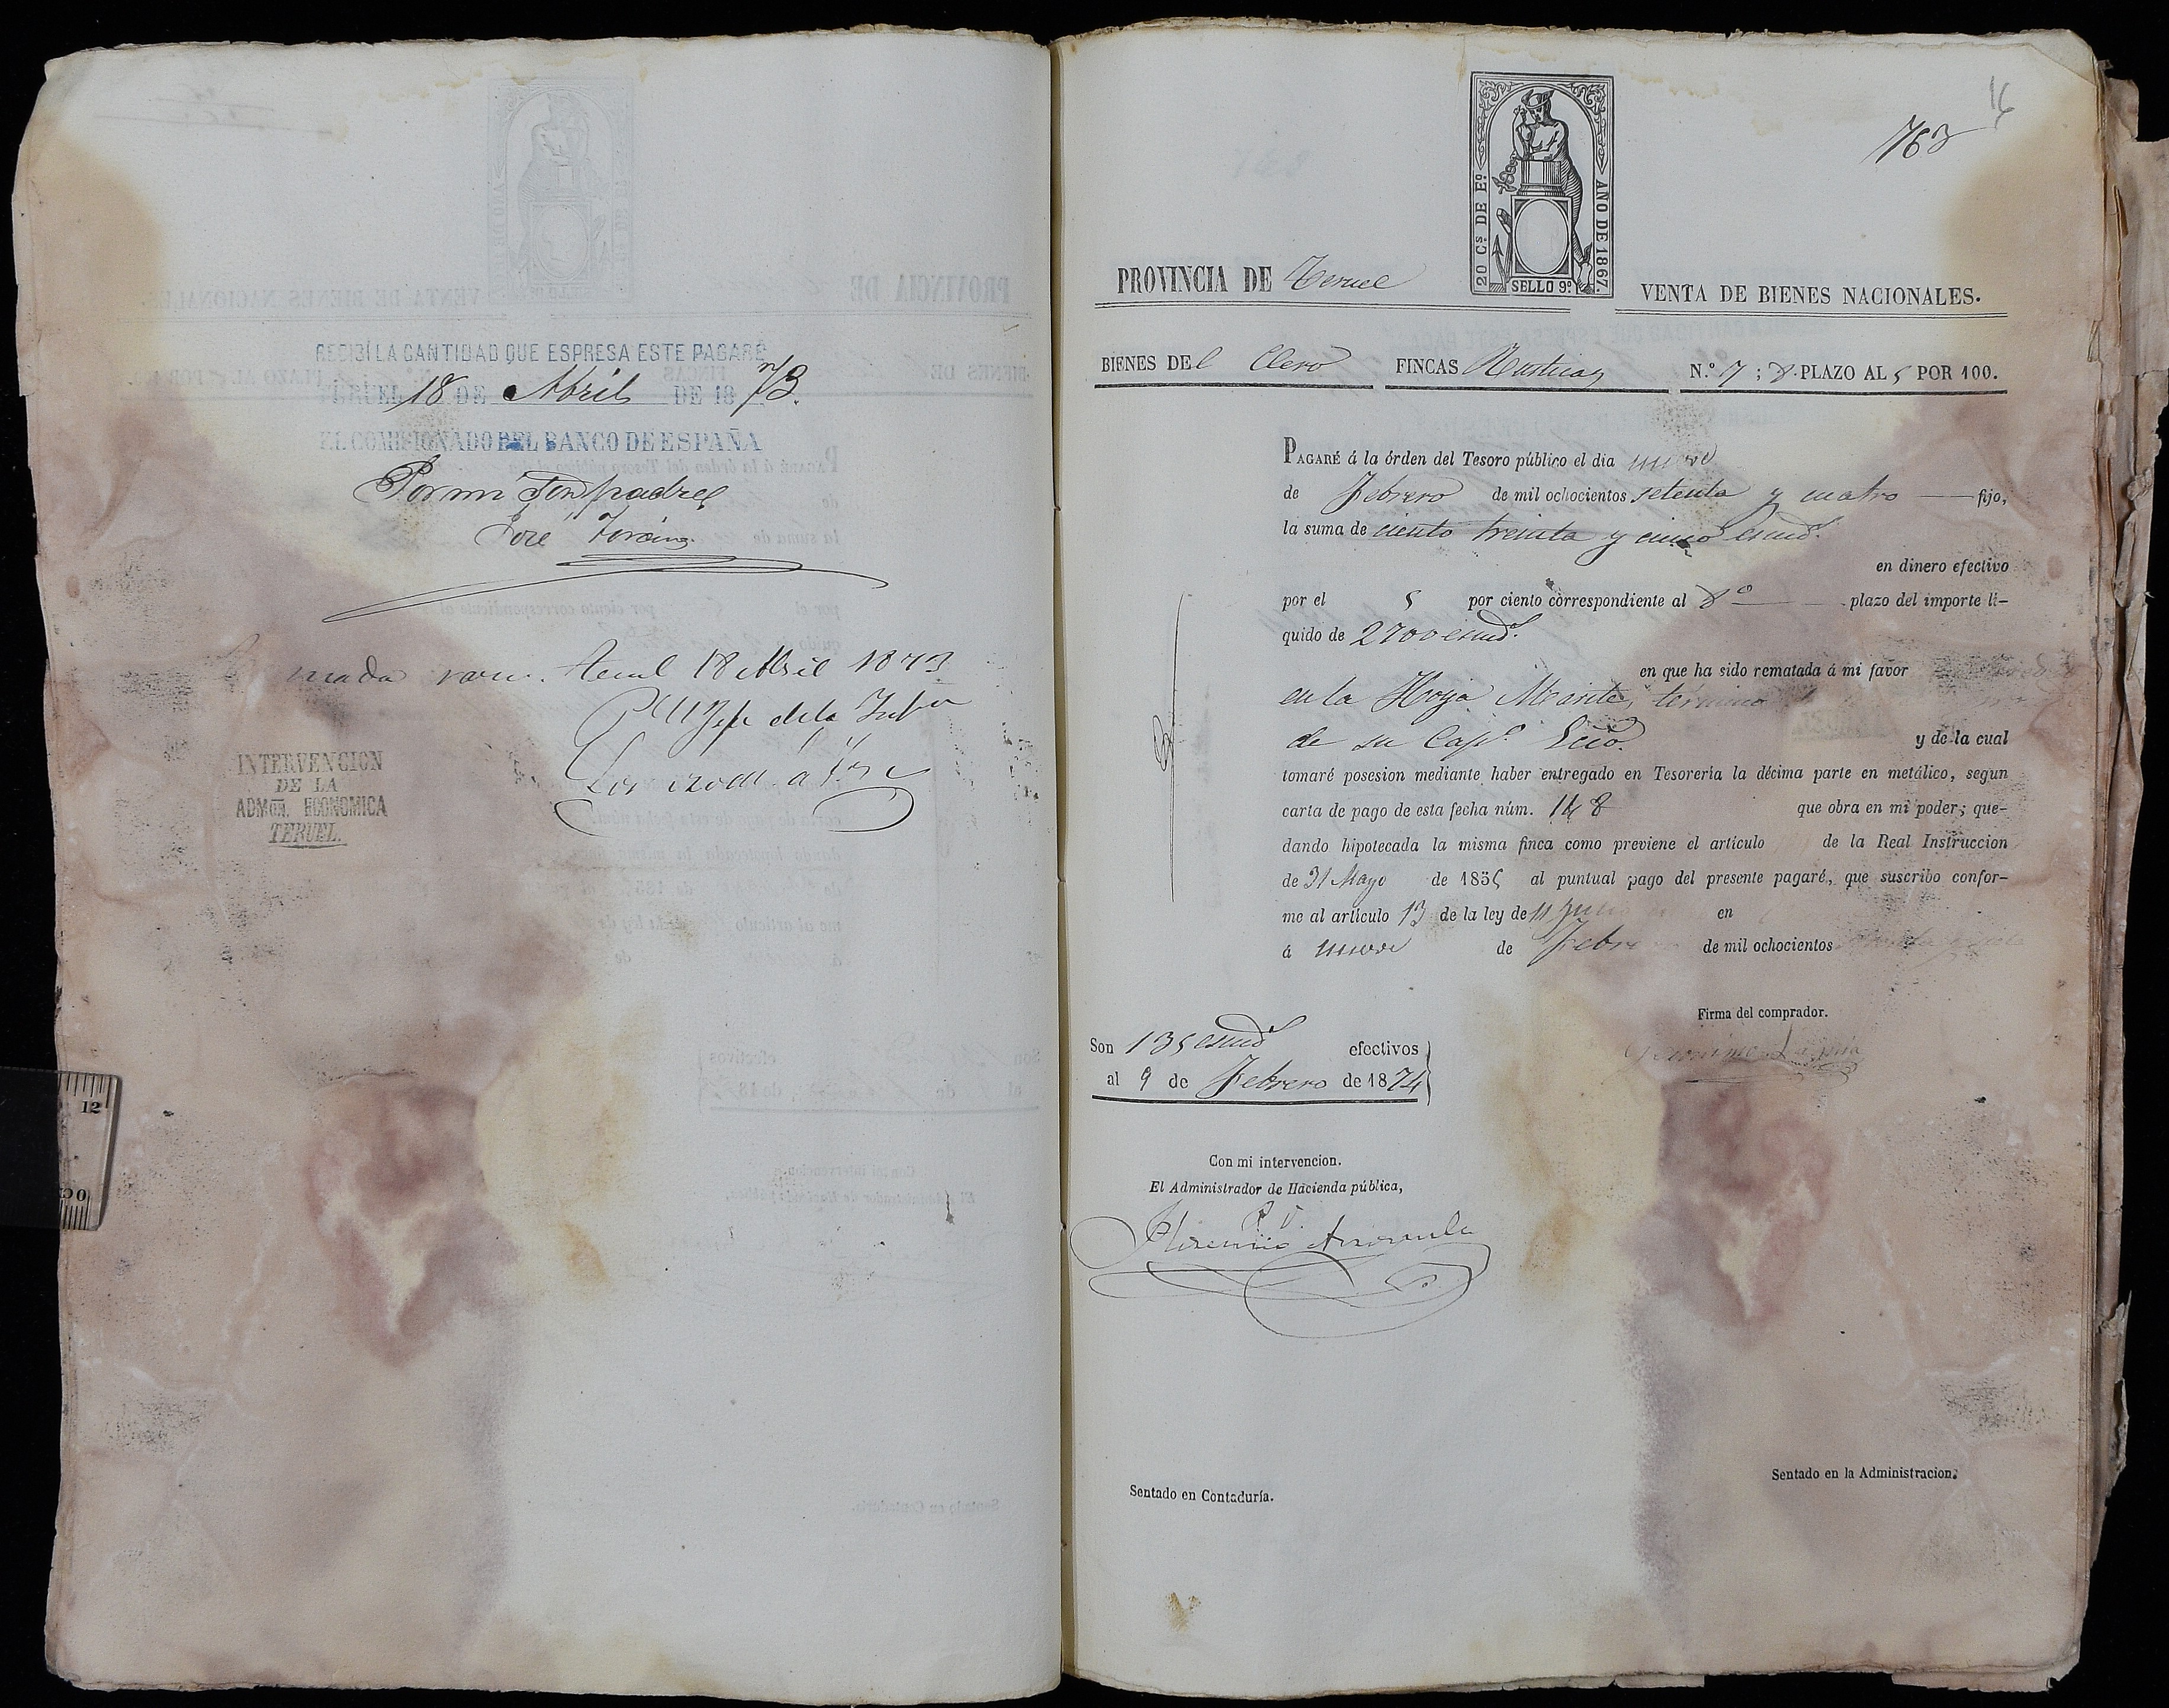 RECIBÍ LA CANTIDAD QUE ESPRESA ESTE PAGARÉ
TERUEL 18 DE Abril DE 1873.
EL COMISIONADO DEL BANCO DE ESPAÑA
Por mi Sor padre
José Torán
Teruel 18 Abril 1873
INTERVENCION
DE LA
ADMON. ECONOMICA
TERUEL.
16
763
20 Cs DE Eo
AÑO DE 1867.
SELLO 9.º
PROVINCIA DE Teruel
VENTA DE BIENES NACIONALES.
BIENES DEl Clero FINCAS Rusticas N.º 7; 8. PLAZO AL 5 POR 100.
PAGARÉ á la órden del Tesoro público el dia nueve
de Febrero de mil ochocientos setenta y cuatro fijo,
la suma de ciento treinta y cinco escud.s
en dinero efectivo
por el 5 por ciento correspondiente al 8º plazo del importe lí-
quido de 2700 escud.s
en que ha sido rematada á mi favor
en la Hoya Mainte, término
de su Cap.º Ecco. y de la cual
tomaré posesion mediante haber entregado en Tesorería la décima parte en metálico, segun
carta de pago de esta fecha núm. 148 que obra en mi poder; que-
dando hipotecada la misma finca como previene el artículo de la Real Instruccion
de 31 Mayo de 1855 al puntual pago del presente pagaré, que suscribo confor-
me al artículo 13 de la ley de 11 Julio en
á nueve de Febrero de mil ochocientos
Firma del comprador.
Son 135 escud.s efectivos
al 9 de Febrero de 1874
Con mi intervencion.
El Administrador de Hacienda pública,
Sentado en la Administracion.
Sentado en Contaduría.